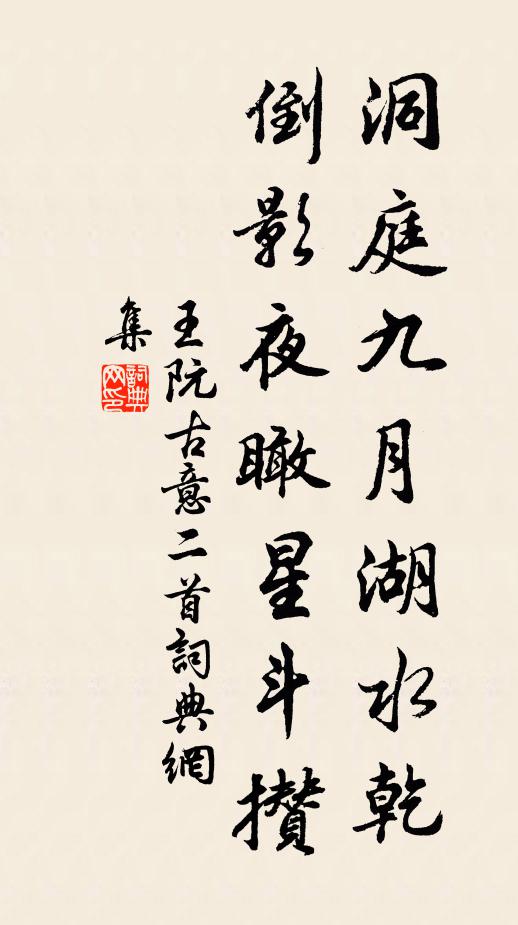 洞庭九月湖水乾
倒影夜瞰星斗攅
王阮古意二首詞典網
集
詞典网印